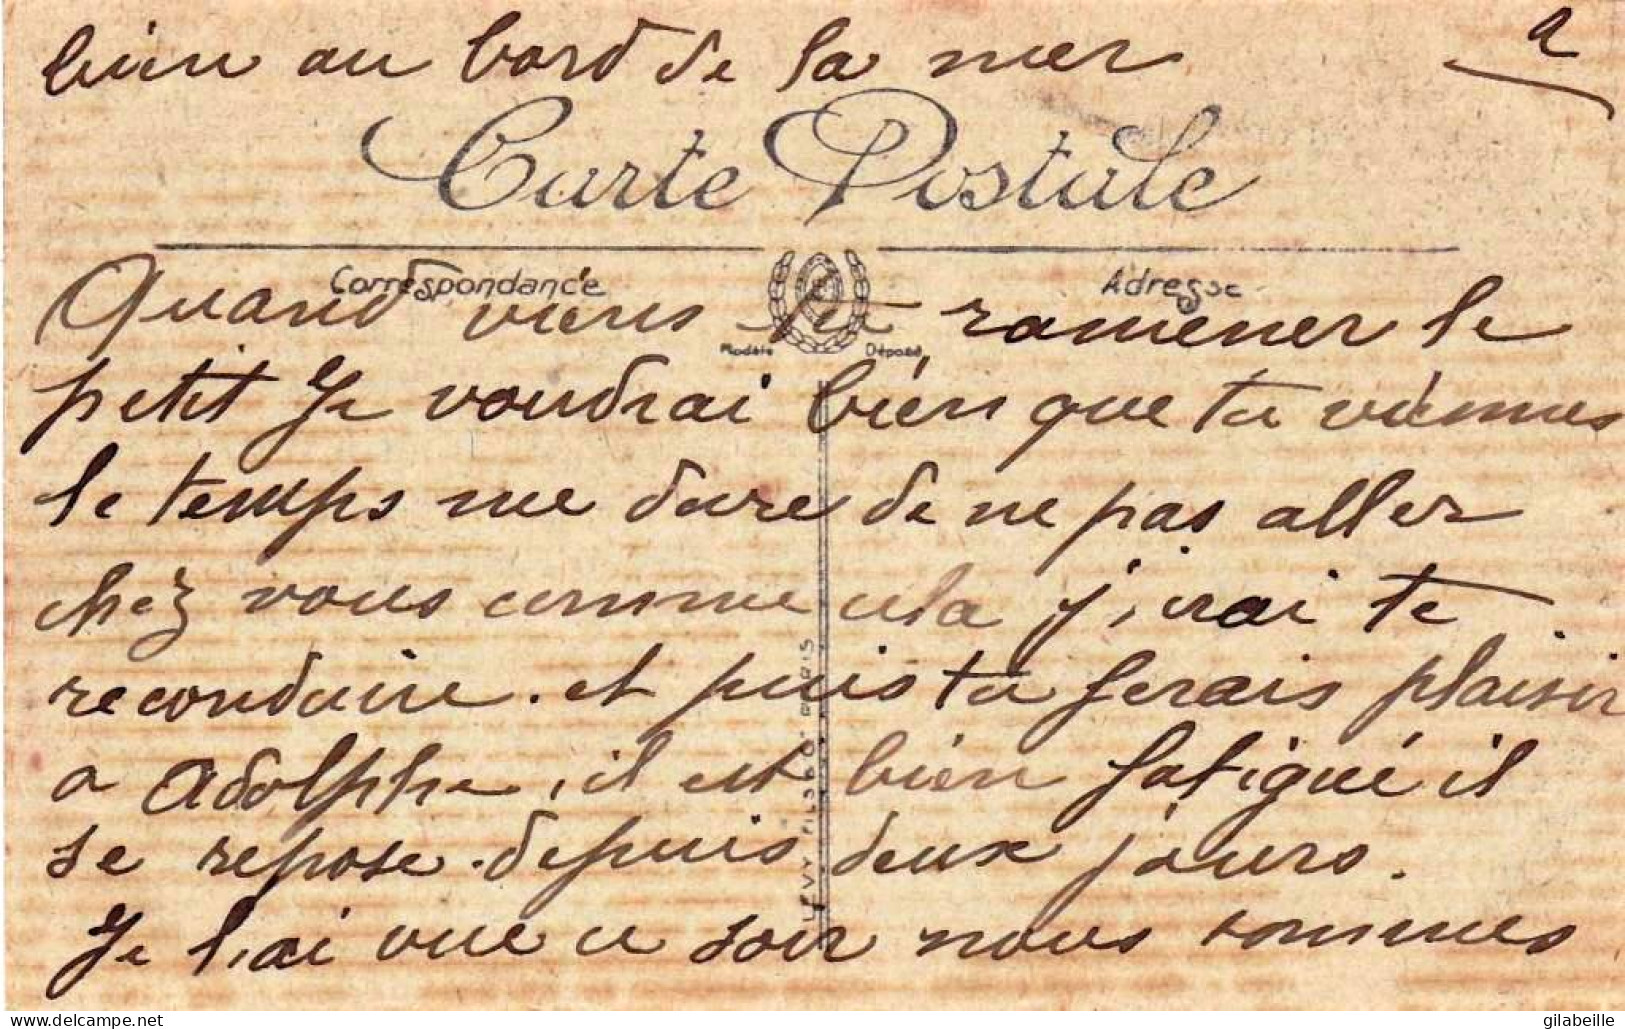 bien au bord de la mer
2
Carte Postale
Correspondance
Adresse
Modèle Déposé
Quand viens tu ramener le
petit Je voudrai bien que tu viennes
le temps me dure de ne pas aller
chez vous comme cela j'irai te
reconduire. et puis tu ferais plaisir
a Adolphe, il est bien fatigué il
se repose depuis deux jours.
Je l'ai vue ce soir nous sommes
LEVY FILS & CO PARIS
gilabeille